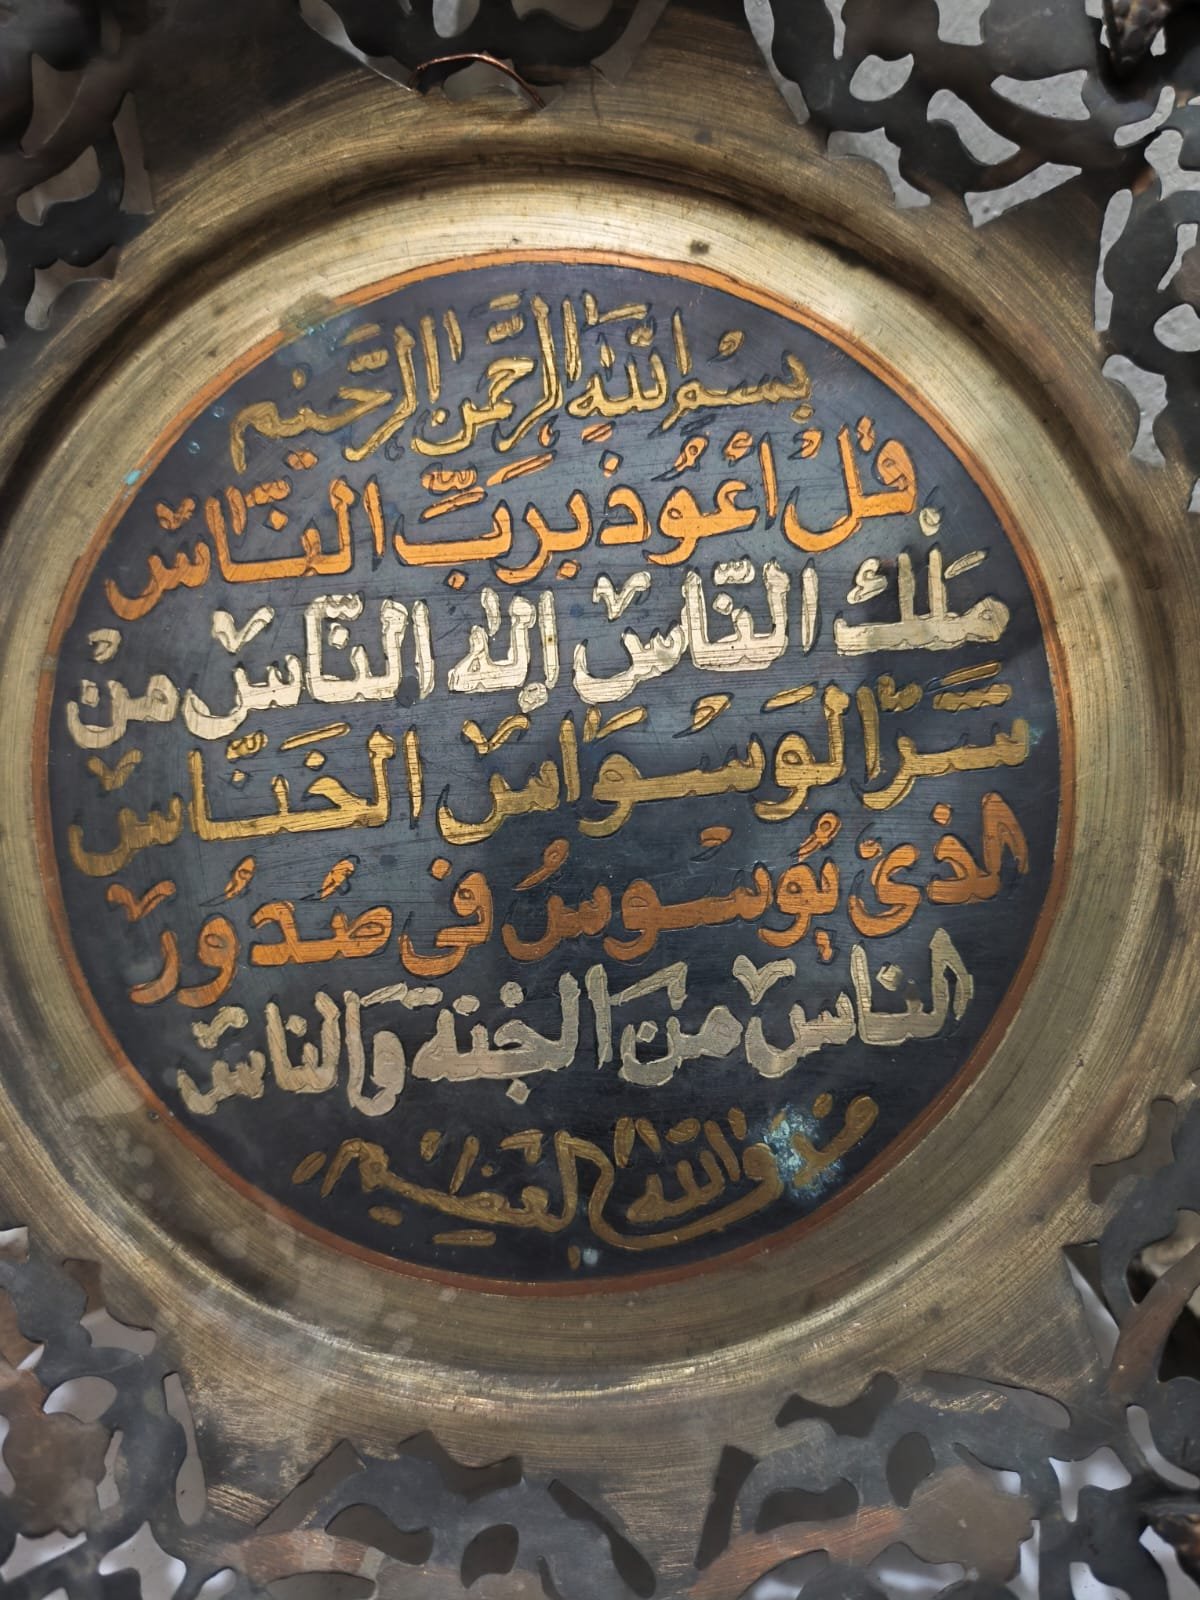 بسم الله الرحمن الرحيم
قل أعوذ برب الناس
ملك الناس إله الناس من
شر الوسواس الخناس
الذي يوسوس في صدور
الناس من الجنة والناس
صدق الله العظيم